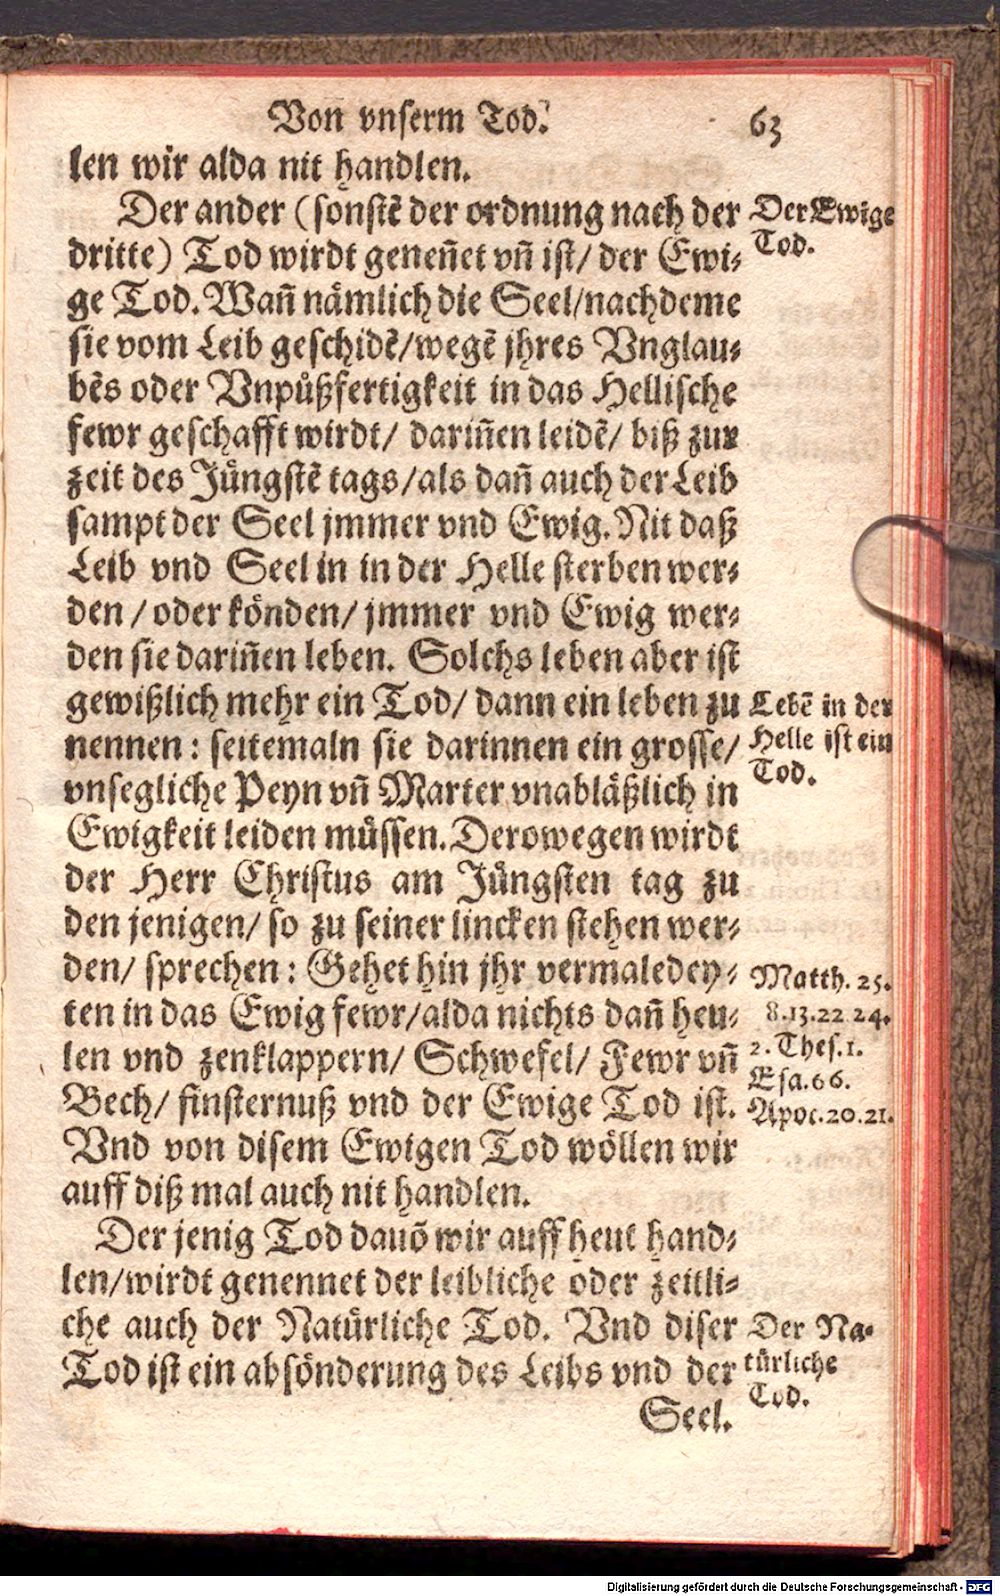 Von vnserm Tod. 63
len wir alda nit handlen.
Der ander (sonstẽ der ordnung nach der
dritte) Tod wirdt geneñet vñ ist/ der Ewi-
ge Tod. Wañ nämlich die Seel/nachdeme
sie vom Leib geschidẽ/wegẽ jhres Vnglau-
bẽs oder Vnpůßfertigkeit in das Hellische
fewr geschafft wirdt/ dariñen leidẽ/ biß zur
zeit des Jüngstẽ tags/als dañ auch der Leib
sampt der Seel jmmer vnd Ewig. Nit daß
Leib vnd Seel in in der Helle sterben wer-
den / oder könden/ jmmer vnd Ewig wer-
den sie dariñen leben. Solchs leben aber ist
gewißlich mehr ein Tod/ dann ein leben zu
nennen : seitemaln sie darinnen ein grosse/
vnsegliche Peyn vñ Marter vnabläßlich in
Ewigkeit leiden müssen. Derowegen wirdt
der Herr Christus am Jüngsten tag zu
den jenigen/ so zu seiner lincken stehen wer-
den/ sprechen : Gehet hin jhr vermaledey-
ten in das Ewig fewr/alda nichts dañ heu-
len vnd zenklappern/ Schwefel/ Fewr vñ
Bech/ finsternuß vnd der Ewige Tod ist.
Vnd von disem Ewigen Tod wöllen wir
auff diß mal auch nit handlen.
Der jenig Tod dauõ wir auff heut hand-
len/wirdt genennet der leibliche oder zeitli-
che auch der Natürliche Tod. Vnd diser
Tod ist ein absönderung des Leibs vnd der
Seel.
Der Ewige
Tod.
Lebẽ in der
Helle ist ein
Tod.
Matth. 25.
8.13.22 24.
2. Thes.1.
Esa.66.
Apoc.20.21.
Der Na-
türliche
Tod.
Digitalisierung gefördert durch die Deutsche Forschungsgemeinschaft - DFG